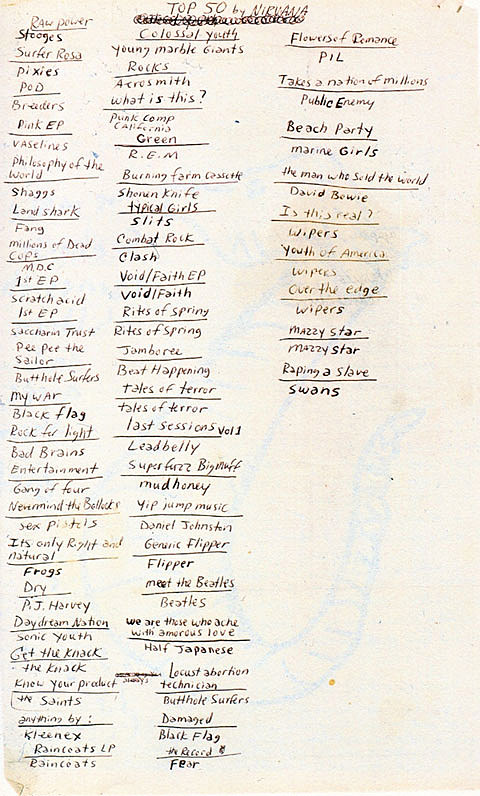 TOP 50 by NIRVANA
Raw power
Stooges
Surfer Rosa
Pixies
POD
Breeders
Pink EP
Vaselines
Philosophy of the
World
Shaggs
Land shark
Fang
millions of Dead
Cops
M.D.C
1st EP
Scratch acid
1st EP
Saccharin Trust
Pee pee the
Sailor
Butthole Surfers
My WAR
Black flag
Rock for light
Bad Brains
Entertainment
Gang of four
Nevermind the Bollocks
sex pistols
Its only Right and
natural
Frogs
Dry
P.J. Harvey
Daydream Nation
Sonic Youth
Get the Knack
the Knack
Know your product
the Saints
anything by:
Kleenex
Raincoats LP
Raincoats
Colossal Youth
Young marble Giants
Rocks
Aerosmith
What is this?
Punk Comp
California
Green
R.E.M
Burning farm Cassette
Shonen Knife
typical Girls
Slits
Combat Rock
Clash
Void/Faith EP
Void/Faith
Rites of Spring
Rites of Spring
Jamboree
Beat Happening
tales of terror
tales of terror
last sessions Vol 1
Leadbelly
Superfuzz Bigmuff
mudhoney
Yip jump music
Daniel Johnston
Generic Flipper
Flipper
meet the Beatles
Beatles
we are those who ache
with amorous love
Half Japanese
Locust abortion
technician
Butthole Surfers
Damaged
Black Flag
the Record
Fear
Flowers of Romance
PIL
Takes a nation of millions
Public Enemy
Beach Party
marine Girls
the man who sold the world
David Bowie
Is this real?
Wipers
Youth of America
Wipers
Over the edge
Wipers
MAZZY Star
MAZZY Star
Raping a Slave
Swans